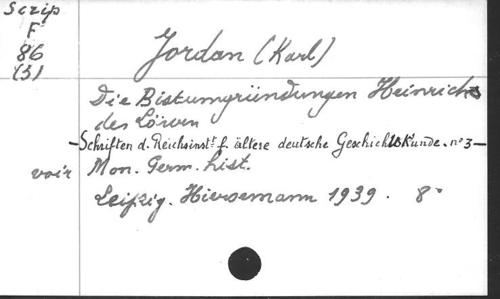 Scrip
F
86
(3)
Jordan (Karl)
Die Bistumgründungen Heinrichs
des Löwen
-Schriften d. Reichsinst^t f. ältere deutsche Geschichtskunde. n° 3-
voir Mon. Germ. hist.
Leipzig. Hiersemann 1939. 8°